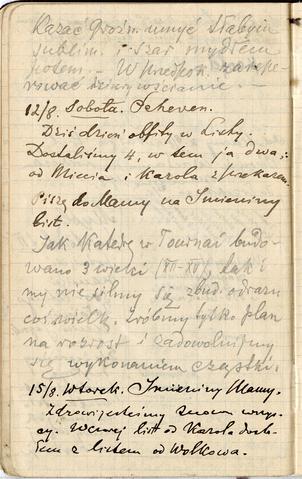 Kazać Groźn. umyć słabym
sublim. i szar mydłem
potem. – W przedpok. zarepe-
rować dziury w ścianie. –
12/8. Sobota. Echeven.
Dziś dzień obfity w Listy.
Dostaliśmy 4, w tem ja dwa:
od Micia i Karola z przekazem.
Piszę do Mamy na Imieniny
list.
Jak Katedrę w Tournai budo-
wano 3 wieki (XII–XV), tak i
my nie silmy się zbud. odrazu
coś wielk. zróbmy tylko plan
na rozrost i zadowolnijmy
się wykonaniem cząstki.
15/8. Wtorek. Imieniny Mamy.
Zdrowi jesteśmy znowu wszys-
cy. Wczoraj list od Karola dosta-
łem z listem od Wolkowa.